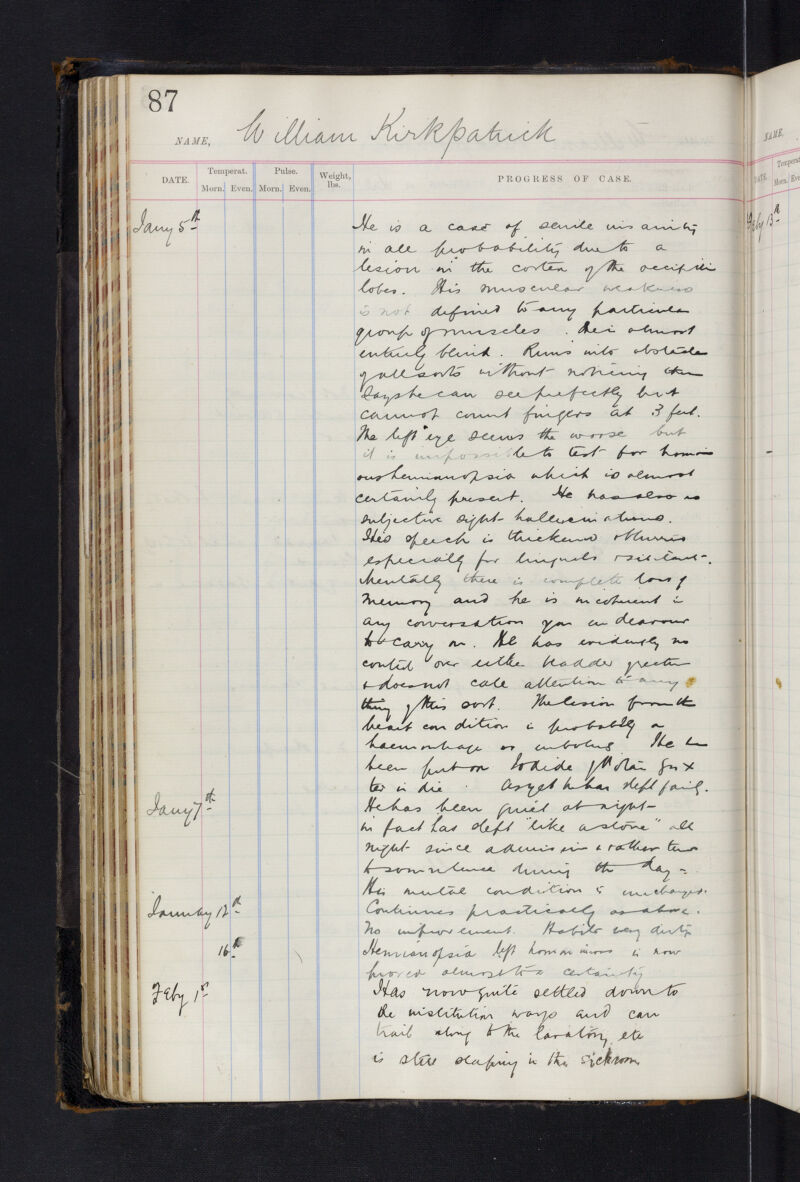 87
NAME, William Kirkpatrick
DATE. Temperat. Pulse. Weight, lbs. PROGRESS OF CASE.
Morn. Even. Morn. Even.
Jany 5th He is a case of senile insanity
in all probability due to a
lesion in the cortex of the occipital
lobes. His muscular weakness
is not defined to any particular
group of muscles. He is almost
entirely blind. Runs into obstacles
of all sorts without noticing them
Says he can see perfectly but
cannot count fingers at 3 feet.
The left eye seems the worse but
it is impossible to test for homonim
ous hemianopsia which is almost
certainly present. He has also no
subjective sight hallucinations.
His speech is thickened
especially for linguals
Mentally there is complete loss of
memory and he is incoherent in
any conversation you endeavour
to carry on. He has evidently no
control over either bladder
& does not call attention to any
thing of this sort. The lesion from the
heart condition is probably a
haemorrhage or embolus He has
been put on Iodide of Potass grs x
ter in die. As yet he has slept fairly.
Jany 7th He has been quiet at night
in fact has slept "like a stone" all
night since admission & rather
to somnolence during the day
His mental condition is unchanged.
January 12th Continues practically as above.
No improvement. Habits very dirty
16th Hemianopsia left homonimous is now
proved almost to a certainty
Feby 1st Has now quite settled down to
the institution ways and can
trail along to the lavatory etc
is still sleeping in the sickroom
NAME,
Temperat
DATE. Morn. Eve
Feby 13th